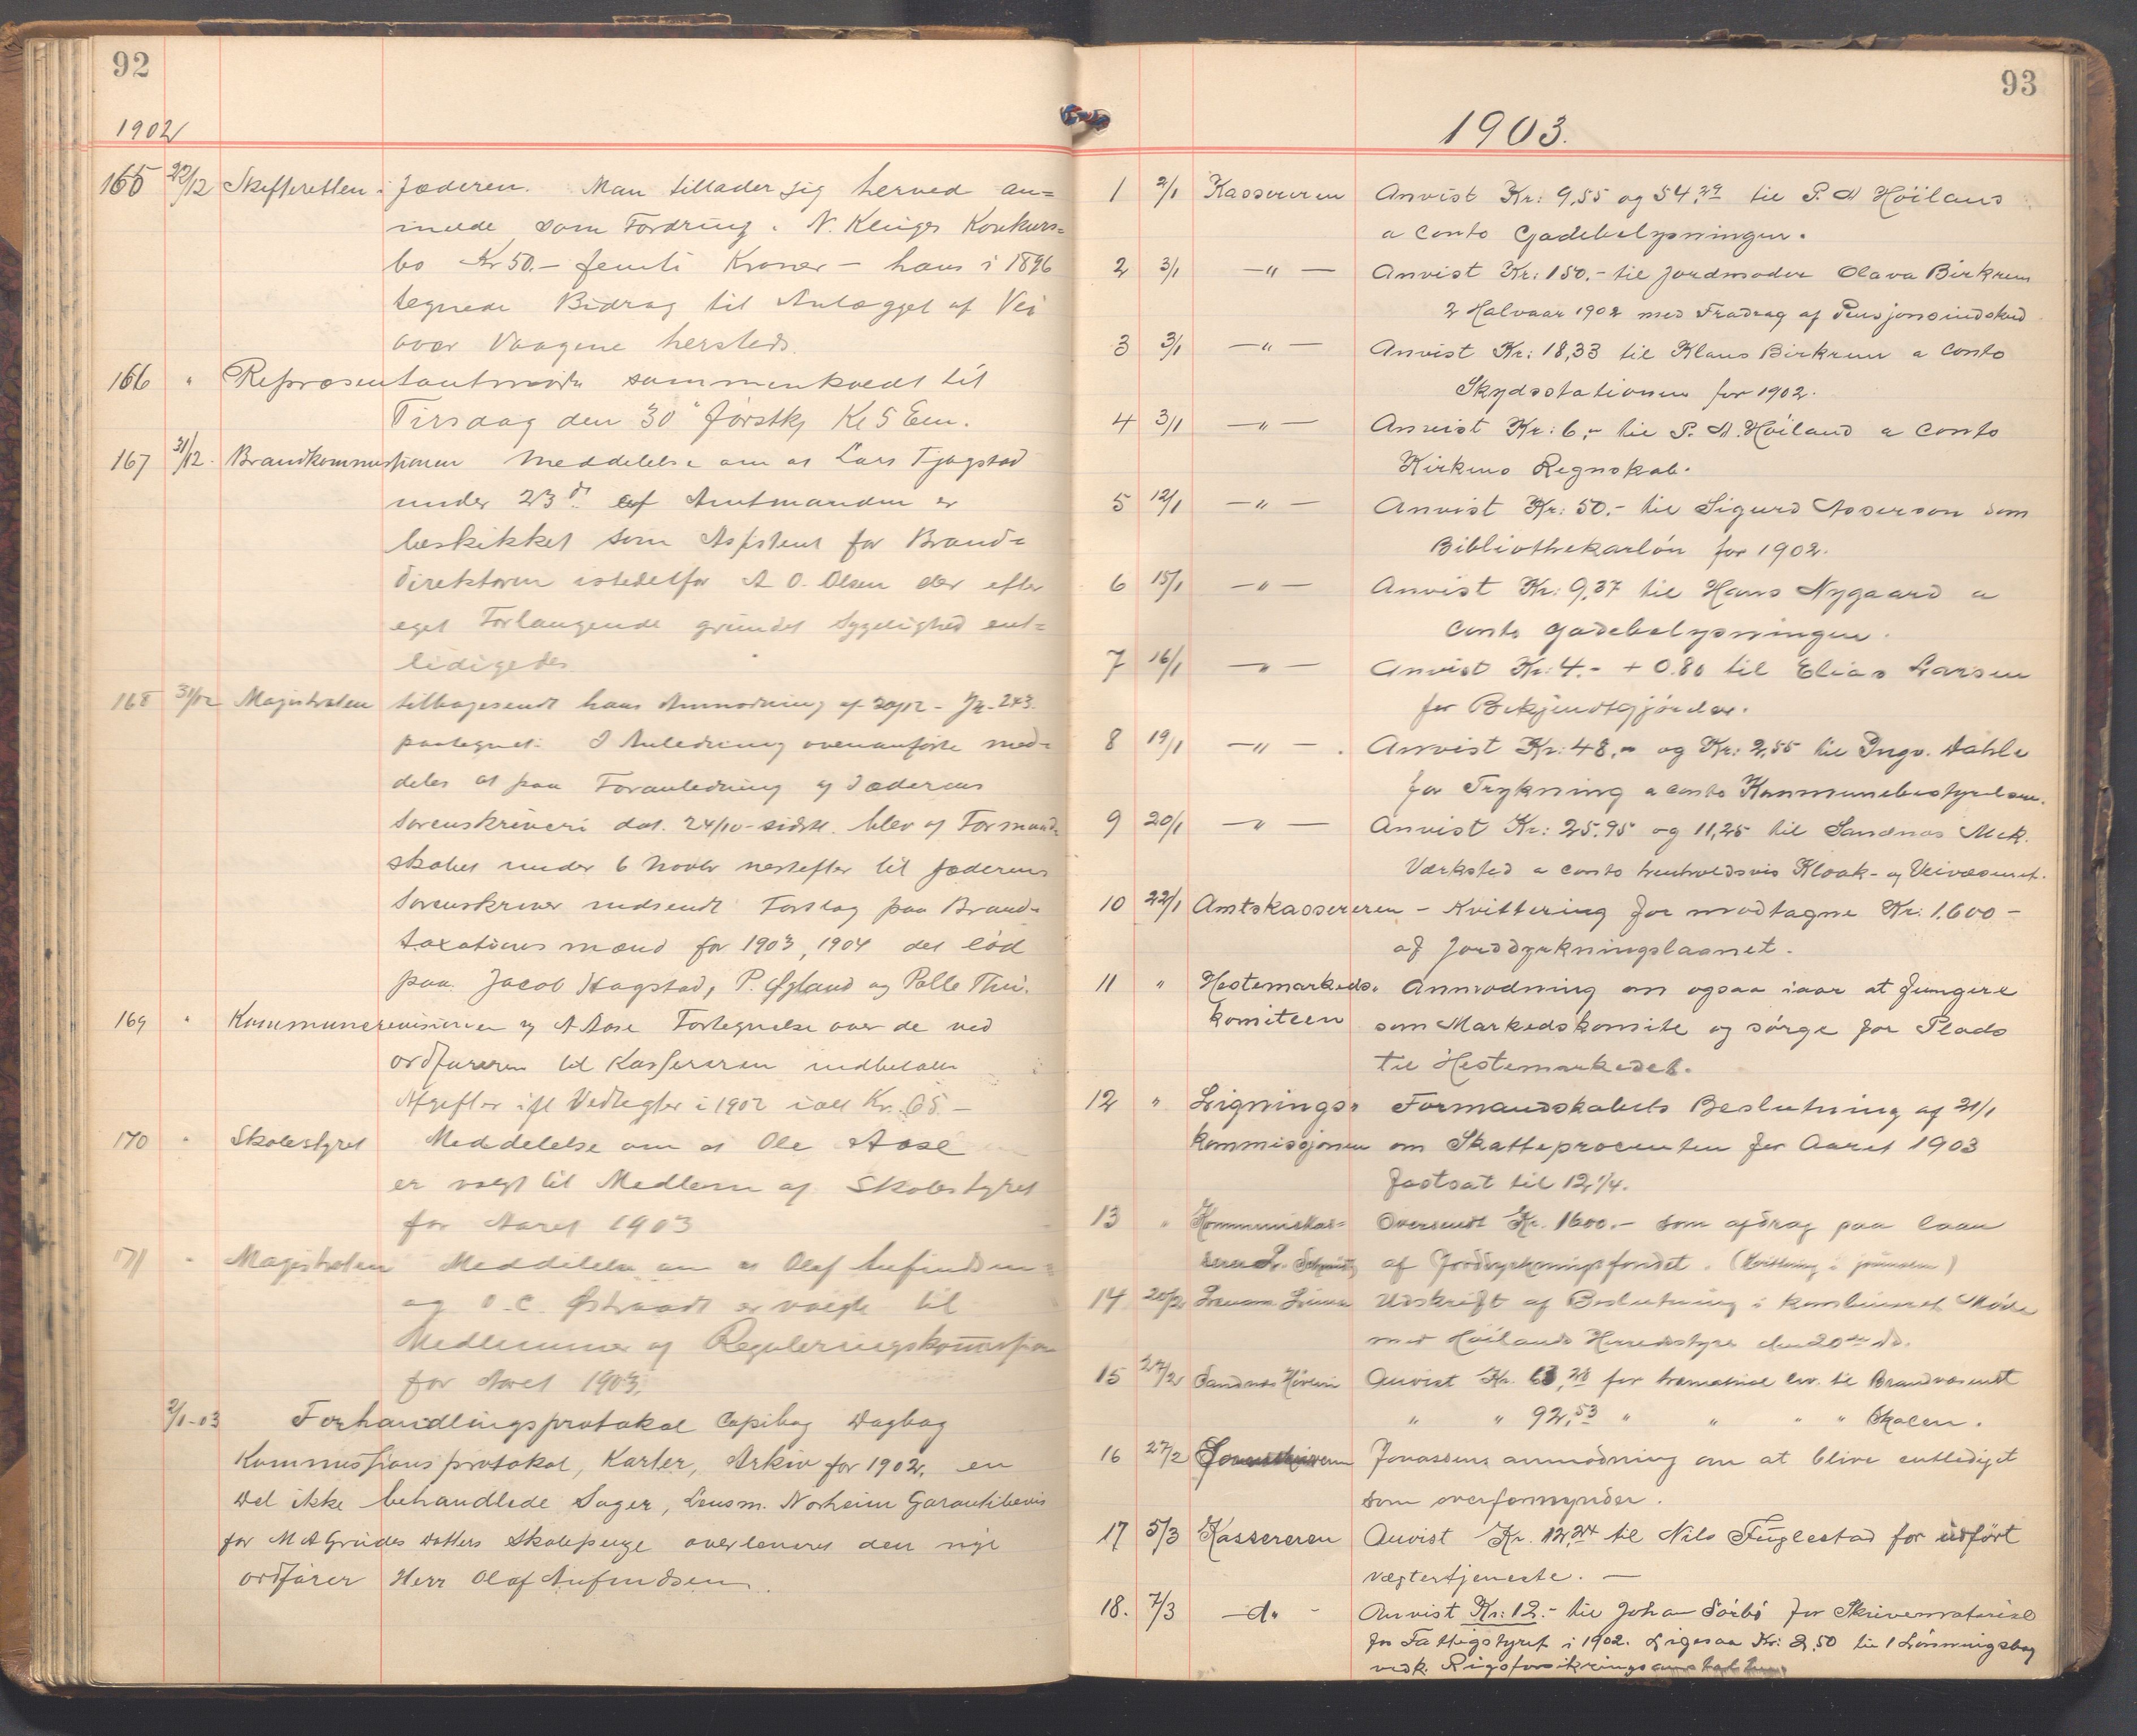 92
1902
165 22/12 Skifteretten i Jæderen. Man tillader sig herved an=
melde som Fordring i N. Kluges Konkurs=
bo Kr 50.- femti Kroner - hans i 1896
tegnede Bidrag til Anlægget af Vei
over Vaagene hersteds.
166 " Repræsentantmøde sammenkaldt til
Tirsdag den 30" førstk. Kl 5 Em.
167 31/12. Brandkommissionen Meddelelse om at Lars Tjågstad
under 23 ds. af Amtmanden er
beskikket som Assistent for Brand=
direktøren istedetfor A O. Olsen der efter
eget Forlangende grundet Sygelighed ent=
lidigedes
168 31/12 Magistraten tilbagesendt hans Anmodning af 30/12 - Jr. 243
paategnet: I Anledning ovenanførte med=
deles at paa Foranledning af Jæderens
Sorenskriveri dat. 24/10 sidstl. blev af Formand=
skabet under 6 Novbr næstefter til Jæderens
Sorenskriver indsendt Forslag paa Brand=
taxationsmænd for 1903, 1904 det lød
paa. Jacob Hagstad, P. Øgland og Palle Thu.
169 " Kommunerevisionen ved A Aase Fortegnelse over de ved
ordføreren til Kassereren indbetalte
Afgifter ifl Vedlegter i 1902 ialt Kr. 65.-
170 " Skolestyret Meddelelse om at Ole Aase
er valgt til Medlem af Skolestyret
for Aaret 1903
171 " Magistraten Meddelelse om at Olaf Aufindsen
og O. C. Østraadt er valgte til
Medlemmer af Reguleringskommission
for Aaret 1903.
2/1-03 Forhandlingsprotokol Copibog Dagbog
Kommissionsprotokol, Karter, Arkiv for 1902, en
Del ikke behandlede Sager, Lensm. Norheim Garantibevis
for M A Grudes Datters Skolepenge overleveret den nye
ordfører Herr Olaf Aufindsen.
93
1903.
1 2/1 Kassereren Anvist Kr: 9,55 og 54,29 til P. A Höiland
a conto Gadebelysningen.
2 3/1 —"— Anvist Kr: 150.- til Jordmoder Olava Birkrem
2 Halvaar 1902 med Fradrag af Pensjonsindskud
3 3/1 —"— Anvist Kr: 18,33 til Klaus Birkrem a conto
Skydsstationen for 1902.
4 3/1 —"— Anvist Kr: 6,- til P. A. Höiland a conto
Kirkens Regnskab.
5 12/1 —"— Anvist Kr: 50.- til Sigurd Asserson som
Bibliothekarlön for 1902.
6 15/1 —"— Anvist Kr: 9,37 til Hans Nygaard a
conto gadebelysningen.
7 16/1 —"— Anvist Kr: 4.- + 0.80 til Elias Larsen
for Bekjendtgjörelse.
8 19/1 —"—. Anvist Kr: 48,- og Kr: 2,55 til Ingv. Dahle
for Trykning a conto Kommunebestyrelsen.
9 20/1 —"— Anvist Kr: 25.95 og 11,25 til Sandnes Mek.
Værksted a conto henholdsvis Kloak- og Veivæsenet.
10 22/1 Amtskassereren - Kvittering for modtagne Kr: 1.600 -
af Jorddyrkningslaanet.
11 " Hestemarkeds- Anmodning om ogsaa iaar at fungere
komiteen som Markedskomite og sörge for Plads
til Hestemarkedet.
12 " Lignings- Formandskabets Beslutning af 21/1
kommissjonen om Skatteprocenten for Aaret 1903
fastsat til 12 1/4.
13 " Kommunekas=
Oversendt Kr. 1600.- som afdrag paa laan
serer Schmidt af Jorddyrkningsfondet. (Kvittering i journalen)
14 20/2 Udskrift af Beslutning i kombineret Möde
med Höilands Herredstyre den 20de ds.
15 27/2 Anvist Kr. 63,28 for træmaterial lev. til Brandvæsenet
" " 92,53 " " " " Skolen.
16 27/2 Jonassens anmodning om at blive entlediget
som overformynder.
17 5/3 Kassereren Anvist Kr. 12,24 til Nils Fuglestad for udfört
vægtertjeneste. —
18. 7/3 —d.- Anvist Kr: 12.- til Johan Sörbö for Skrivemateriel
for Fattigstyret i 1902. Ligesaa Kr: 2.50 til 1 Lönningsbog
vedk. Rigsforsikringsanstalten.